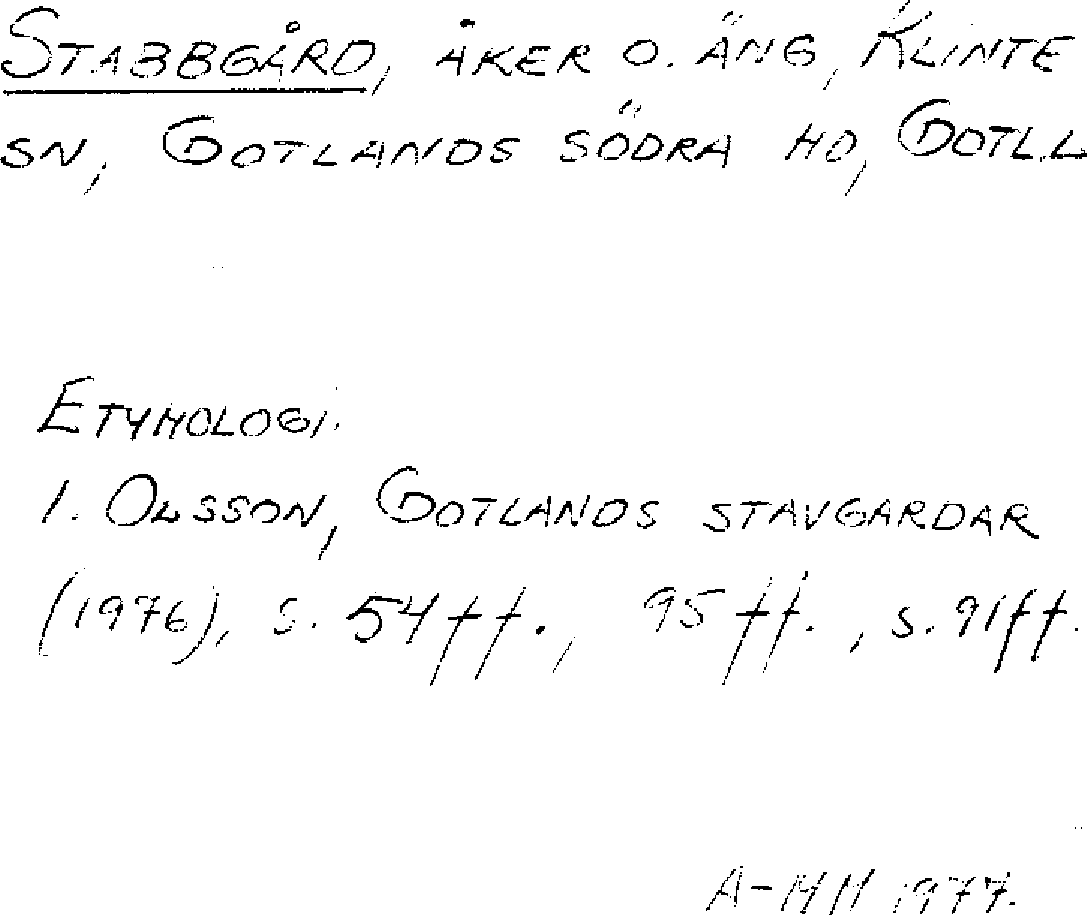 STABBGÅRD, ÅKER O. ÄNG, KLINTE
SN, GOTLANDS SÖDRA HD, GOTL.L
ETYMOLOGI.
I. OLSSON, GOTLANDS STAVGARDAR
(1976), S. 54ff., 95ff., s. 91ff.
A-MH 1977.